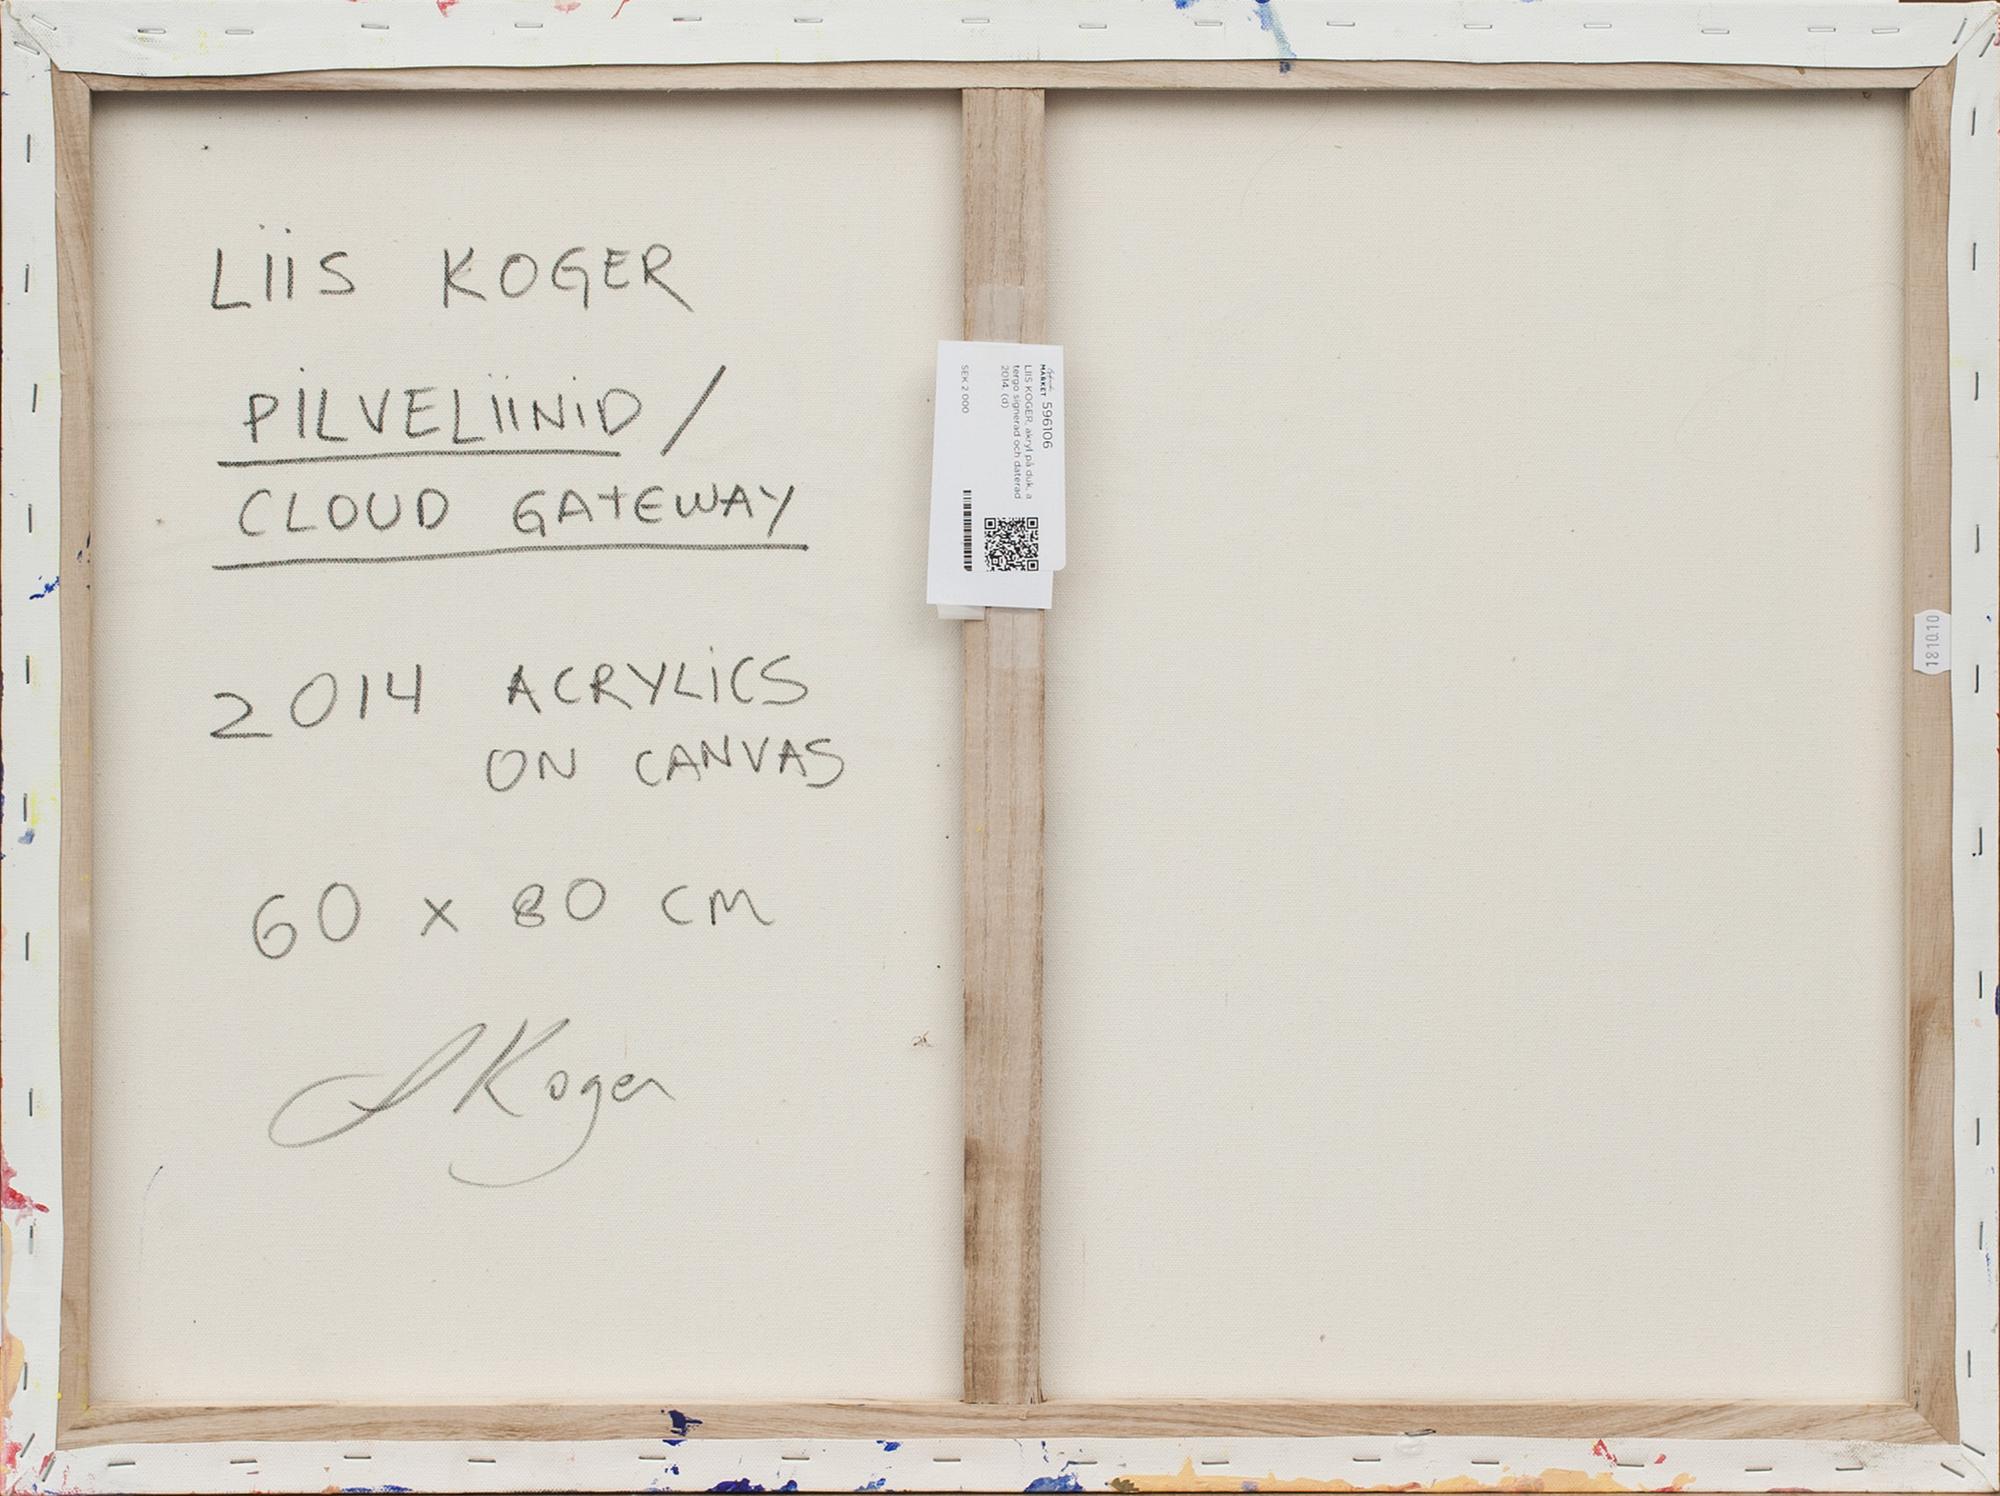 LIIS KOGER
PILVELIINID /
CLOUD GATEWAY
2014 ACRYLICS
ON CANVAS
60 x 80 CM
LKoger
MARKET 596106
LIIS KOGER, akryl på duk, a
tergo signerad och daterad
2014. (d)
SEK 2 000
181010